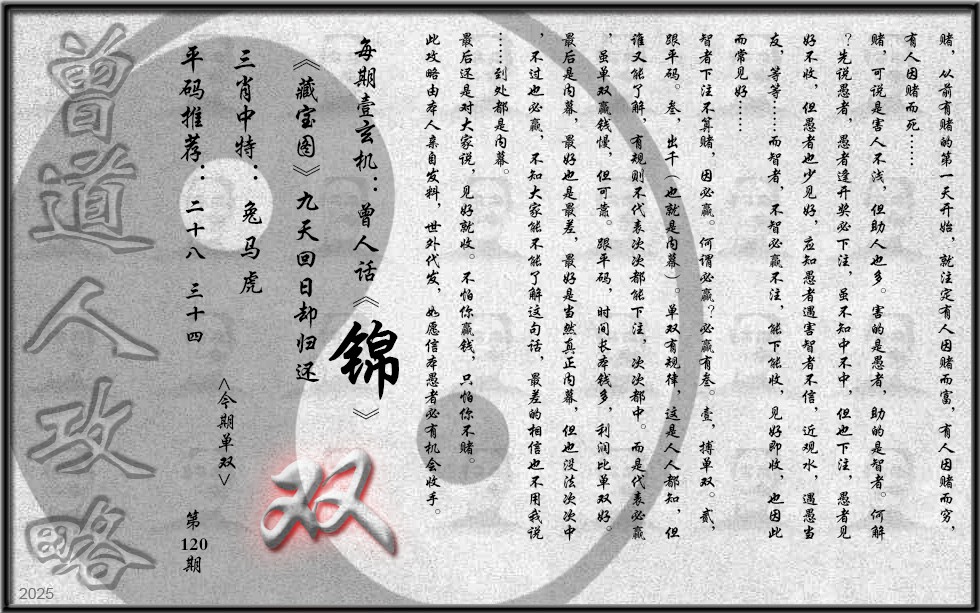 赌，从前有赌的第一天开始，就注定有人因赌而富，有人因赌而穷，
有人因赌而死……
赌，可说是害人不浅，但助人也多。害的是愚者，助的是智者。何解
？先说愚者，愚者逢开奖必下注，虽不知中不中，但也下注，愚者见
好不收，但愚者也少见好，应知愚者遇害智者不信，近观水，遇愚当
友，等等……而智者，不智必赢不注，能下能收，见好即收，也因此
而常见好……
智者下注不算赌，因必赢。何谓必赢？必赢有叁。壹，搏单双。贰，
跟平码。叁，出千（也就是内幕）。单双有规律，这是人人都知，但
谁又能了解，有规则不代表次次都能下注，次次都中。而是代表必赢
，虽单双赢钱慢，但可靠。跟平码，时间长本钱多，利润比单双好。
最后是内幕，最好也是最差，最好是当然真正内幕，但也没法次次中
，不过也必赢，不知大家能不能了解这句话，最差的相信也不用我说
……到处都是内幕。
最后还是对大家说，见好就收。不怕你赢钱，只怕你不赌。
此攻略由本人亲自发料，世外代发，如愿信本愚者必有机会收手。
每期壹玄机：曾人话《锦》
《藏宝图》九天回日却归还
三肖中特：兔马虎
平码推荐：二十八 三十四
<今期单双>
双
第120期
曾道人攻略
2025